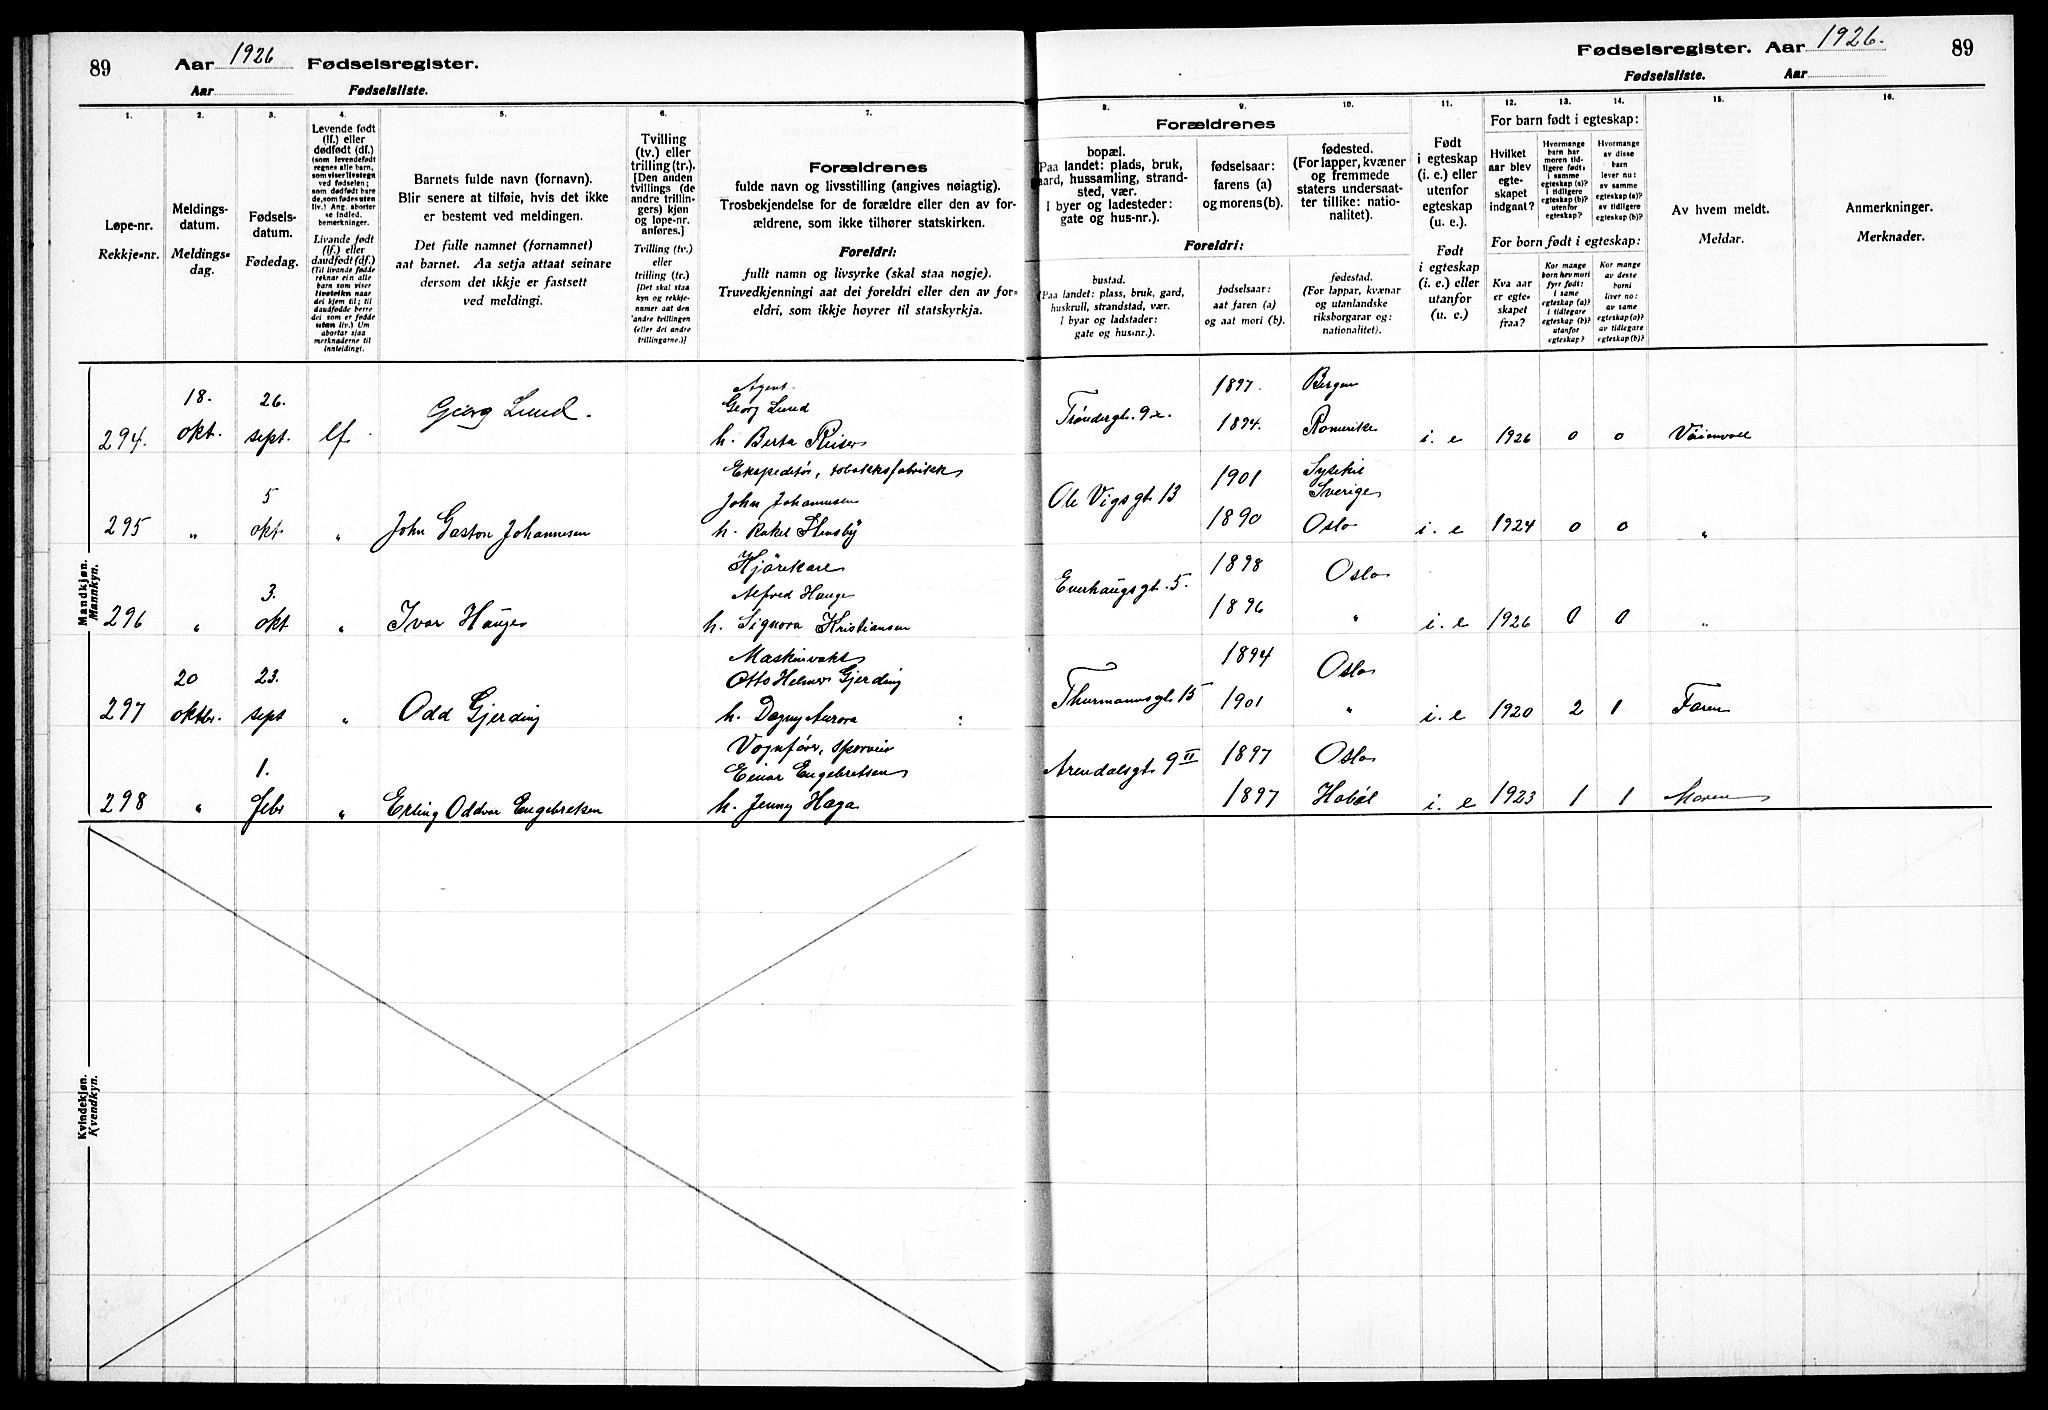 89 Aar 1926 Fødselsregister.
Aar Fødselsliste.
1. 2. 3. 4. 5. 6. 7.
Løpe-nr.
Rekkje-nr.
Meldings-
datum.
Meldings-
dag.
Fødsels-
datum.
Fødedag.
Levende født
(lf.) eller
dødfødt (df.)
(som levendefødt
regnes alle barn,
som viser livstegn
ved fødselen;
som dødfødt bare
de, som fødes uten
liv.) Ang. aborter
se indled.
bemerkninger.
Livande født
(lf.) eller
daudfødt (df.)
(Til livande fødde
reknar ein alle
barn som viser
livsteikn naar
dei kjem til; til
daudfødde berre
dei som er fødde
utan liv.) Um
abortar sjaa
merknaderne til
innleidingi.
Barnets fulde navn (fornavn).
Blir senere at tilføie, hvis det ikke
er bestemt ved meldingen.
Det fulle namnet (fornamnet)
aat barnet. Aa setja attaat seinare
dersom det ikkje er fastsett
ved meldingi.
Tvilling
(tv.) eller
trilling (tr.).
[Den anden
tvillings (de
andre trillin-
gers) kjøn
og løpe-nr.
anføres.]
Tvilling (tv.)
eller
trilling (tr.)
[Det skal staa
kyn og rekkje-
numer aat den
andre tvillingen
(eller dei andre
trillingarne.)]
Forældrenes
fulde navn og livsstilling (angives nøiagtig).
Trosbekjendelse for de forældre eller den av for-
ældrene, som ikke tilhører statskirken.
Foreldri:
fullt namn og livsyrke (skal staa nøgje).
Truvedkjenningi aat dei foreldri eller den av for-
eldri, som ikkje høyrer til statskyrkja.
Mandkjøn.
Mannkyn.
294. 18. okt. 26. sept. lf. Georg Lund.
Agent.
Georg Lund
h. Berta Reiser
295 " 5 okt " John Gaston Johannesen
Ekspeditør, tobakksfabrikk
John Johannesen
h. Rakel Stensby
296 " 3. okt " Ivar Hauge
Kjørekar
Alfred Hauge
h. Signora Kristiansen
297 20 oktbr. 23. sept " Odd Gjerding
Maskinvakt
Otto Helmer Gjerding
h. Dagny Aurora
298 " 1. febr " Erling Oddvar Engebretsen
Vognfører, sporveie
Einar Engebretsen
h. Jenny Haga
Kvindekjøn.
Kvendkyn.
Fødselsregister. Aar 1926. 89
Fødselsliste. Aar
8. 9. 10. 11. 12. 13. 14. 15. 16.
Forældrenes
bopæl.
Paa landet: plads, bruk,
gaard, hussamling, strand-
sted, vær.
I byer og ladesteder:
gate og hus-nr.).
fødselsaar:
farens (a)
og morens (b).
fødested.
(For lapper, kvæner
og fremmede
staters undersaat-
ter tillike: natio-
nalitet).
Foreldri:
bustad.
(Paa landet: plass, bruk, gard,
huskrull, strandstad, vær.
I byar og ladstader:
gate og hus-nr.).
fødselsaar:
aat faren (a)
og aat mori (b).
fødestad.
(For lappar, kvænar
og utanlandske
riksborgarar og:
nationalitet).
Født
i egteskap
(i. e.) eller
utenfor
egteskap
(u. e.).
Født
i egteskap
(i. e.) eller
utanfor
(u. e.)
For barn født i egteskap:
Hvilket
aar blev
egte-
skapet
indgaat?
Hvormange
barn har
moren tid-
ligere født:
i samme
egteskap (a)?
i tidligere
egteskap (b)?
utenfor
egteskap?
Hvormange
av disse
barn
lever nu:
av samme
egteskap (a)?
av tidligere
egteskap (b)?
For born født i egteskap:
Kva aar
er egte-
skapet
fraa?
Kor mange
born hev mori
fyrr født:
i same
egteskap (a)?
i tidlegare
egteskap (b)?
utanfor
egteskap?
Kor mange
av desse
borni
liver no:
av same
egteskap (a)?
av tidlegare
egteskap (b)?
Av hvem meldt.
Meldar.
Anmerkninger.
Merknader.
Trøndergt. 9 1897. Bergen
1894. Romerike i. e 1926 0 0
Ole Vigsgt 13 1901 Lysekil Sverige
1890 Oslo i. e 1924 0 0 "
Everhaugsgt. 5. 1898 Oslo
1896 " i. e 1926 0 0 "
Thurmannsgt 15 1894 Oslo
1901 " i. e 1920 2 1 Faren
Arendalsgt 9 II 1897 Oslo
1897 Hobøl i. e 1923 1 1 Moren